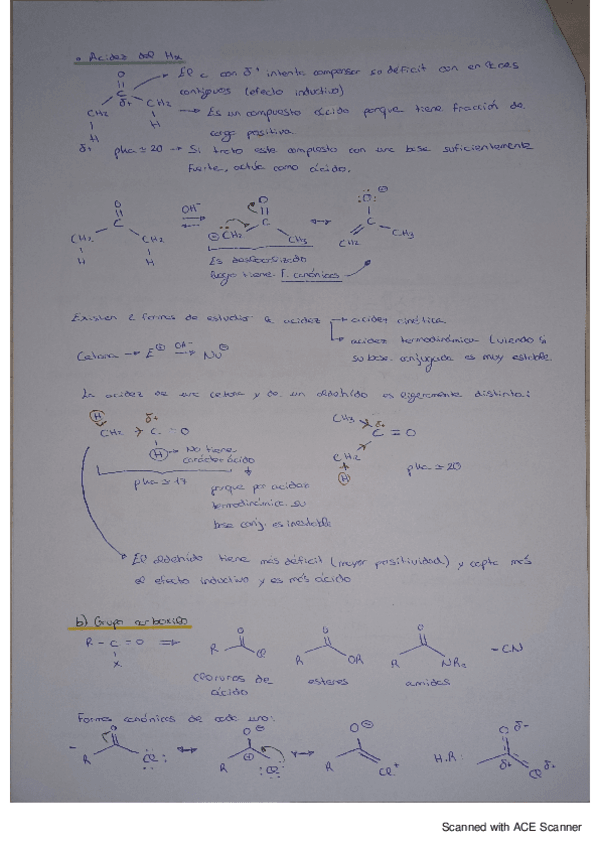 • Acidez del Hα
El C con δ+ intenta compensar su déficit con enlaces
contiguos (efecto inductivo)
O
C
δ+
CH2 CH2
H H
δ+
→ Es un compuesto ácido porque tiene fracción de
carga positiva.
pka ≃ 20 → Si trato este compuesto con una base suficientemente
fuerte, actúa como ácido.
O
C
CH2 CH2
H H
OH⁻
O
C
⊖ CH2 CH3
:O: ⊖
C
CH2 CH3
Es deslocalizado
luego tiene F. canónicas
Existen 2 formas de estudiar la acidez → acidez cinética
→ acidez termodinámica (viendo si
su base conjugada es muy estable.
Cetona → E⊕ OH⁻ → Nu⊖
La acidez de una cetona y de un aldehído es ligeramente distinta:
H δ+
CH2 → C = O
H → No tiene
carácter ácido
pka ≃ 17
porque por acidez
termodinámica su
base conj. es inestable
CH3 δ+
C = O
CH2
H
pka ≃ 20
El aldehído tiene más déficit (mayor positividad) y capta más
el efecto inductivo y es más ácido
b) Grupo carboxilo
R - C = O ⇒
X
O
R Cl
cloruros de
ácido
O
R OR
ésteres
O
R NR2
amidas
- CN
Formas canónicas de cada uno:
- O
R Cl:
O⊖
⊕
R :Cl:
O⊖
R Cl⁺
H.R: O δ-
δ+
Cl δ+
Scanned with ACE Scanner